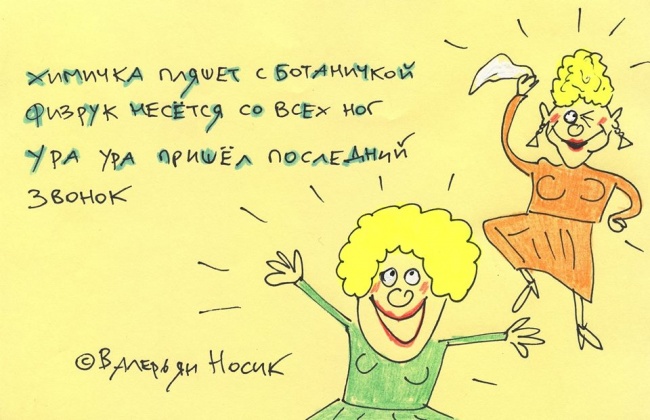 Химичка пляшет с ботаничкой
Физрук несётся со всех ног
Ура ура пришёл последний
звонок
© Валерьян Носик